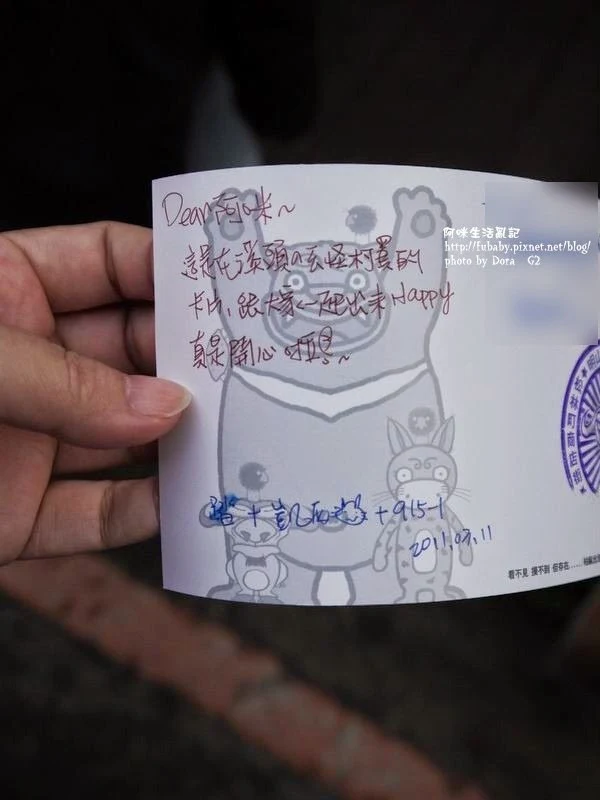 Dear 阿咪~
這是在溪頭の妖怪村買的
卡片,跟大家一起出來Happy
真是開心呀!~
+凱西+915-1
2011.07.11
看不見 摸不到 但存在......
阿咪生活亂記
http://fubaby.pixnet.net/blog/
photo by Dora G2
商店街